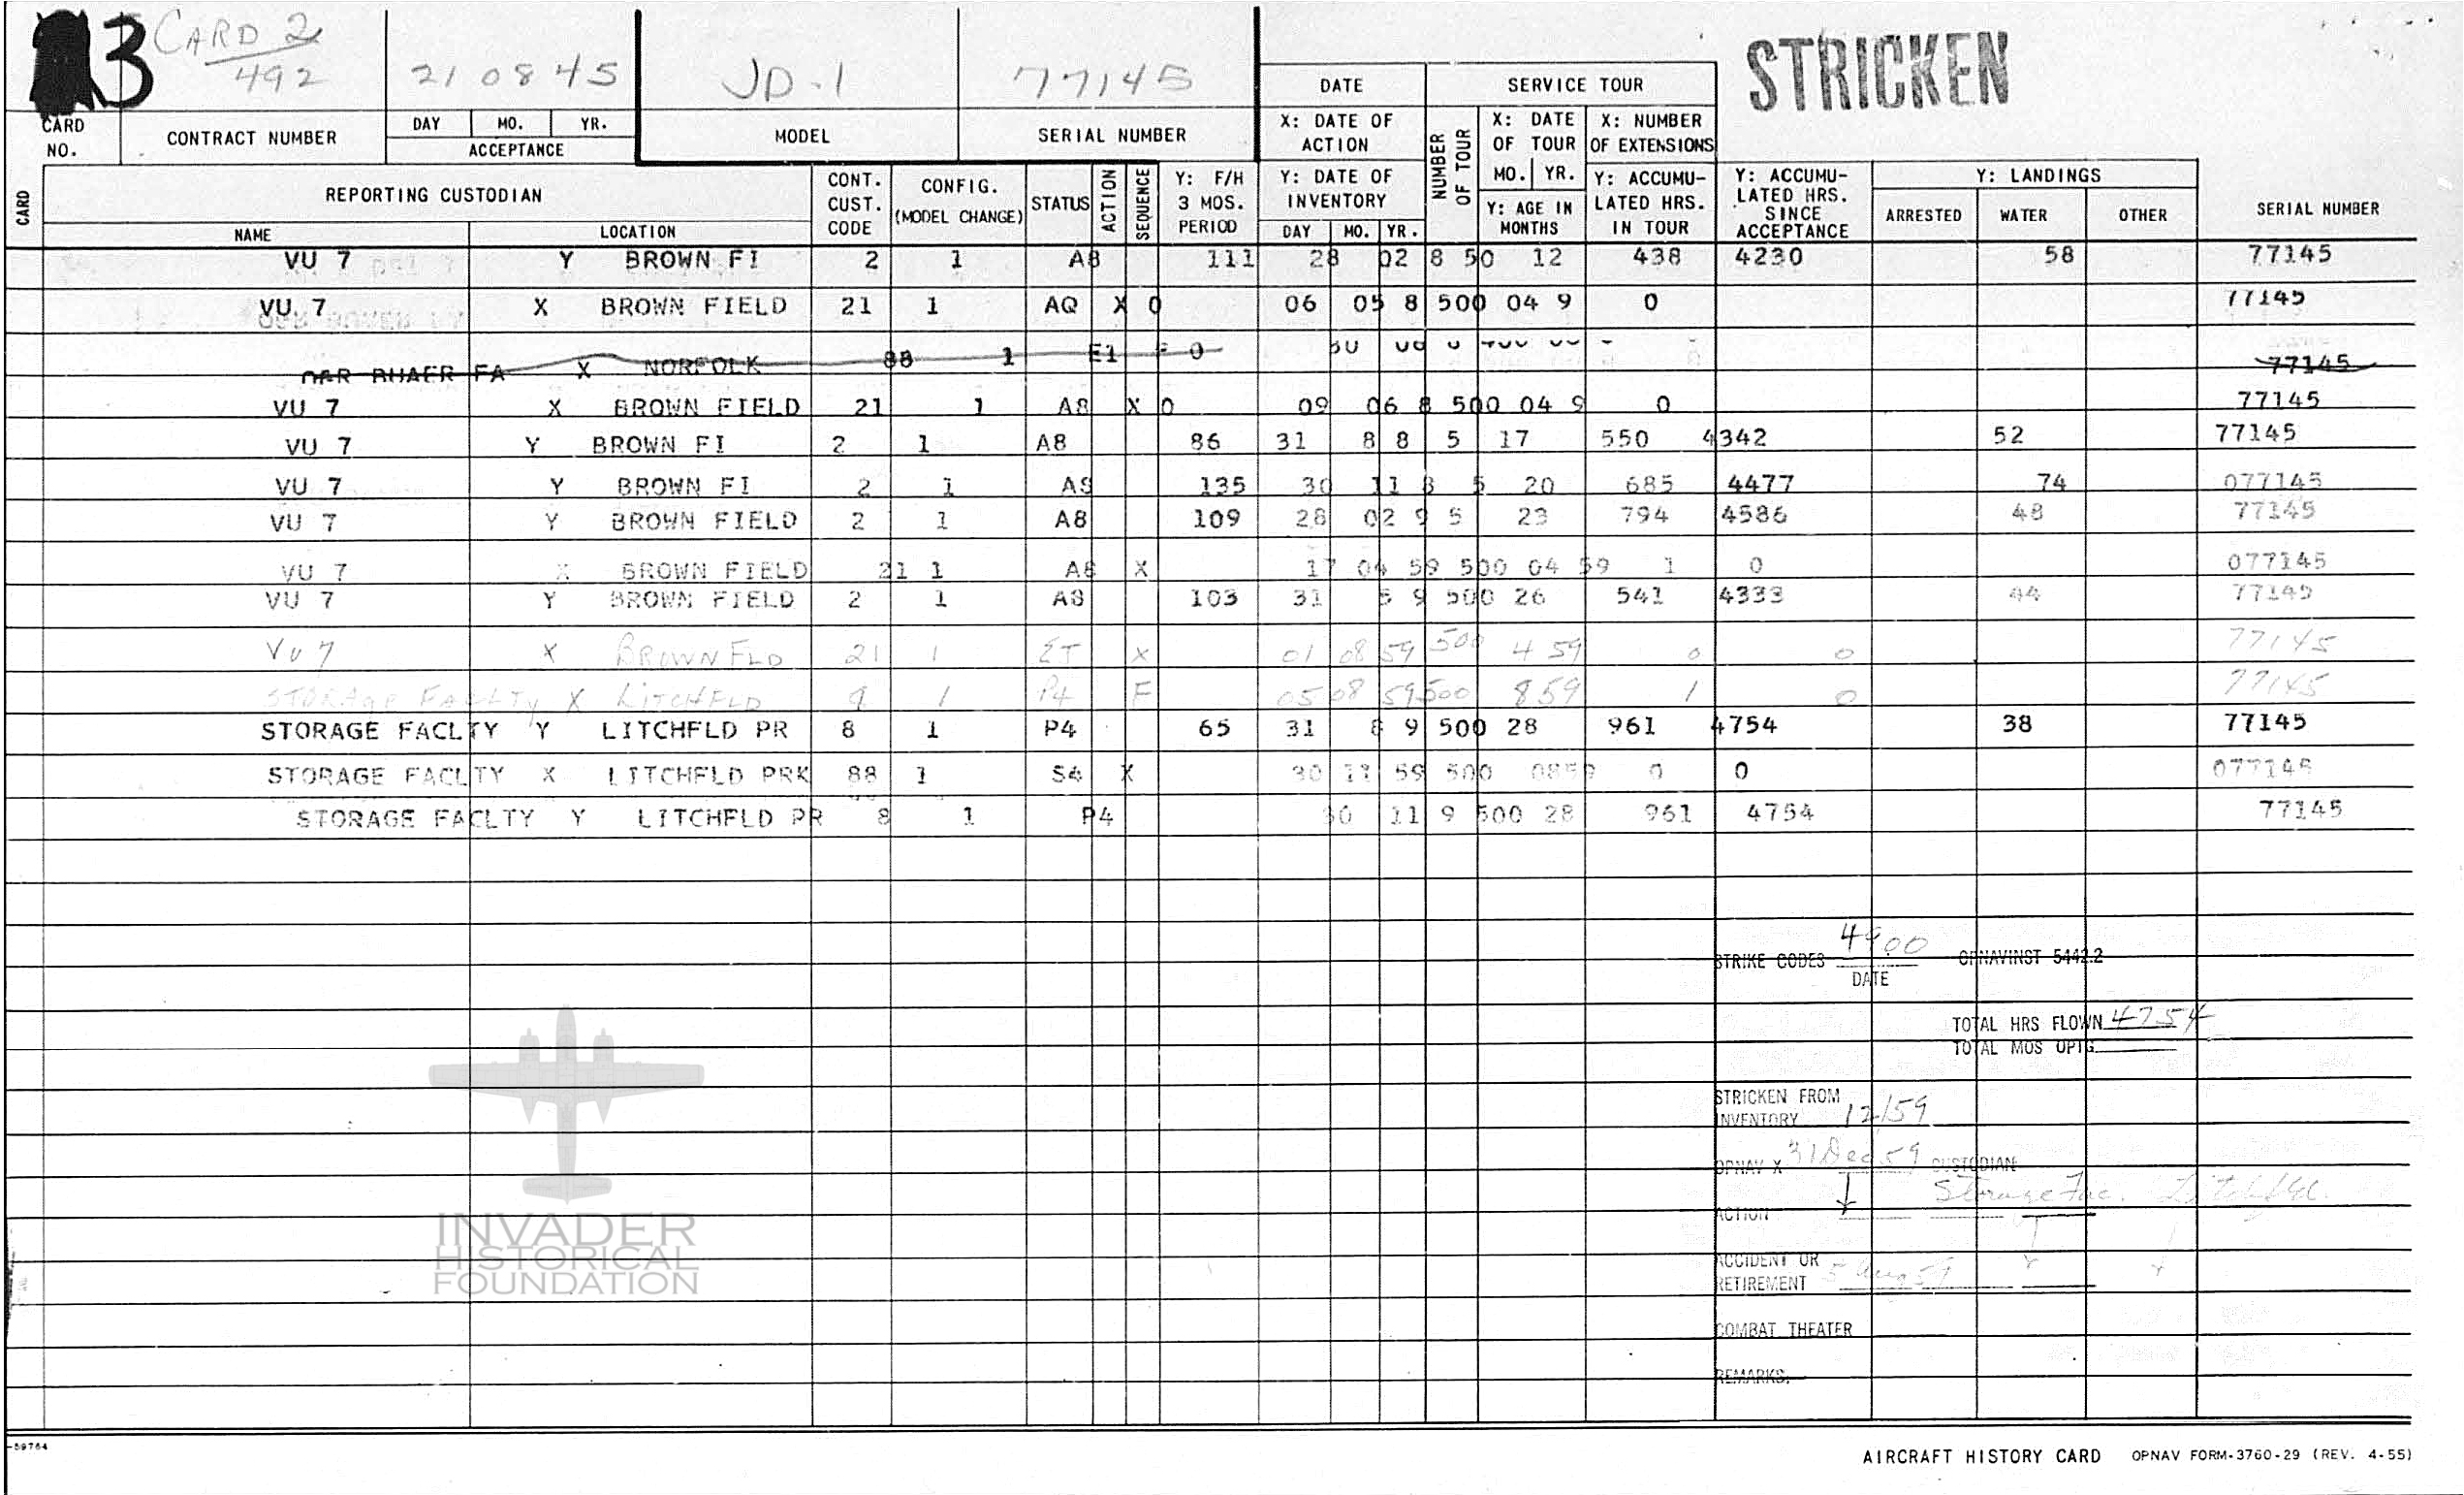 3 CARD 2
492 21 08 45 JD-1 77145 STRICKEN
CARD NO. CONTRACT NUMBER DAY MO. YR. ACCEPTANCE MODEL SERIAL NUMBER
DATE SERVICE TOUR
X: DATE OF ACTION NUMBER OF TOUR X: DATE OF TOUR MO. YR. X: NUMBER OF EXTENSIONS
CARD REPORTING CUSTODIAN CONT. CUST. CODE CONFIG. (MODEL CHANGE) STATUS ACTION SEQUENCE Y: F/H 3 MOS. PERIOD Y: DATE OF INVENTORY Y: AGE IN MONTHS Y: ACCUMU- LATED HRS. IN TOUR Y: ACCUMU- LATED HRS. SINCE ACCEPTANCE Y: LANDINGS SERIAL NUMBER
NAME LOCATION DAY MO. YR. ARRESTED WATER OTHER
VU 7 Y BROWN FI 2 1 A8 111 28 02 8 50 12 438 4230 58 77145
VU 7 X BROWN FIELD 21 1 AQ X 0 06 05 8 500 04 9 0 77145
OAR BUAER FA X NORFOLK 88 1 E1 F 0 77145
VU 7 X BROWN FIELD 21 1 A8 X 0 09 06 8 500 04 9 0 77145
VU 7 Y BROWN FI 2 1 A8 86 31 8 8 5 17 550 4342 52 77145
VU 7 Y BROWN FI 2 1 A8 135 30 11 8 5 20 685 4477 74 077145
VU 7 Y BROWN FIELD 2 1 A8 109 28 02 9 5 23 794 4586 48 77145
VU 7 X BROWN FIELD 21 1 A8 X 17 04 59 500 04 59 1 0 077145
VU 7 Y BROWN FIELD 2 1 A8 103 31 5 9 500 26 541 4333 44 77145
VU 7 X BROWN FLD 21 1 ET X 01 08 59 500 4 59 0 0 77145
STORAGE FACLTY X LITCHFLD 1 P4 F 05 08 59 500 8 59 1 0 77145
STORAGE FACLTY Y LITCHFLD PR 8 1 P4 65 31 8 9 500 28 961 4754 38 77145
STORAGE FACLTY X LITCHFLD PRK 88 1 S4 X 30 11 59 500 0859 0 0 077145
STORAGE FACLTY Y LITCHFLD PR 8 1 P4 30 11 9 500 28 961 4754 77145
STRIKE CODES 4900 OPNAVINST 5442.2
DATE
TOTAL HRS FLOWN 4754
TOTAL MOS OPTG
STRICKEN FROM
INVENTORY 12/59
OPNAV X 31 Dec 59 CUSTODIAN
Storage Fac. Litchfld.
ACTION
ACCIDENT OR
RETIREMENT 5 Aug 59
COMBAT THEATER
REMARKS:
INVADER
HISTORICAL
FOUNDATION
-59764
AIRCRAFT HISTORY CARD OPNAV FORM-3760-29 (REV. 4-55)